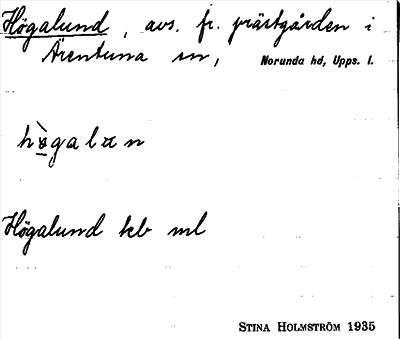 Högalund, avs. fr. prästgården i
Ärentuna sn, Norunda hd, Upps. l.
högalan
Högalund kb ml
STINA HOLMSTRÖM 1935